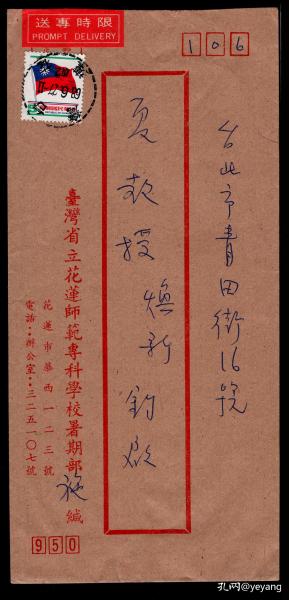 限時專送
PROMPT DELIVERY
106
台北市青田街16號
夏教授煥新鈞啟
臺灣省立花蓮師範專科學校暑期部 施 緘
花蓮市華西一二三號
電話：辦公室：三二五一〇七號
950
孔网@yeyang